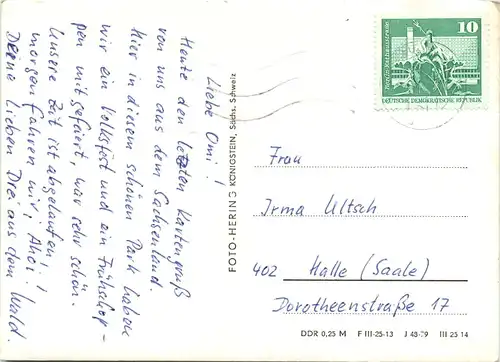 Liebe Omi!
Heute den letzten Kartengruß
von uns aus dem Sachsenland.
Hier in diesem schönen Park haben
wir ein Volksfest und ein Frühschop-
pen mit gefeiert, war sehr schön.
Unsere Zeit ist abgelaufen!
morgen fahren wir! Ahoi!
Deine lieben Drei aus dem Wald
FOTO-HERING KÖNIGSTEIN, Sächs. Schweiz
10
Berlin, Neptunbrunnen
DEUTSCHE DEMOKRATISCHE REPUBLIK
Frau
Irma Ultsch
402 Halle (Saale)
Dorotheenstraße 17
DDR 0,25 M F III-25-13 J 48-79 III 25 14